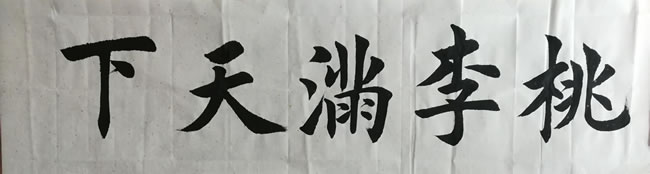 桃李満天下